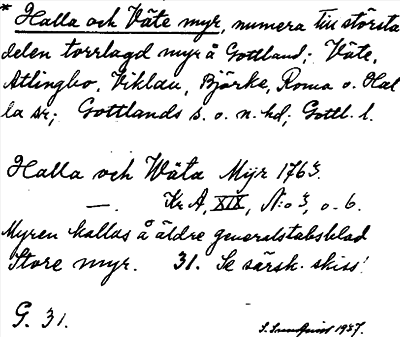 * Halla och Väte myr, numera till största
delen torrlagd myr å Gottland; Väte,
Atlingbo, Viklau, Björke, Roma o. Hal
la sr; Gottlands s. o. n. hd; Gottl. l.
Halla och Wäta Myr 1763.
—. Kr A, XIX, N:o 3, o. 6.
Myren kallas å äldre generalstabsblad
Store myr. 31. Se särsk. skiss!
G. 31.
1937.